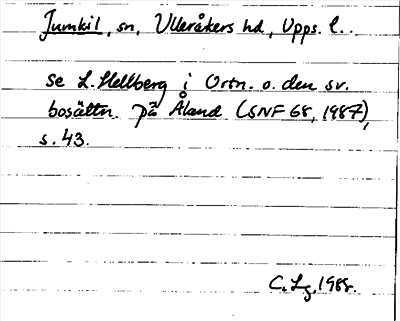 Jumkil, sn, Ulleråkers hd, Upps. l..
se L. Hellberg i Ortn. o. den sv.
bosättn. på Åland (SNF 68, 1987),
s. 43.
C. Lg. 1988.